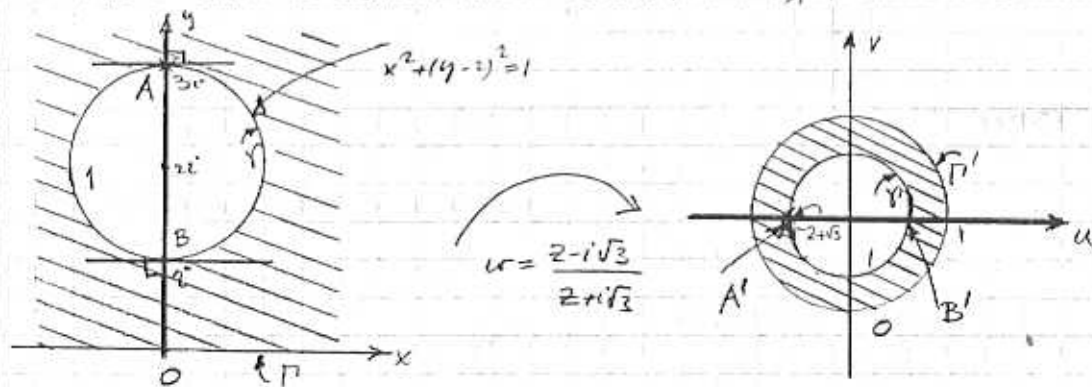 y
A
3i
x²+(y-2)²=1
γ
1
2i
B
i
x
0
Γ
w = \frac{z-i\sqrt{3}}{z+i\sqrt{3}}
v
Γ'
γ'
-2+√3
1
1
u
A'
B'
0